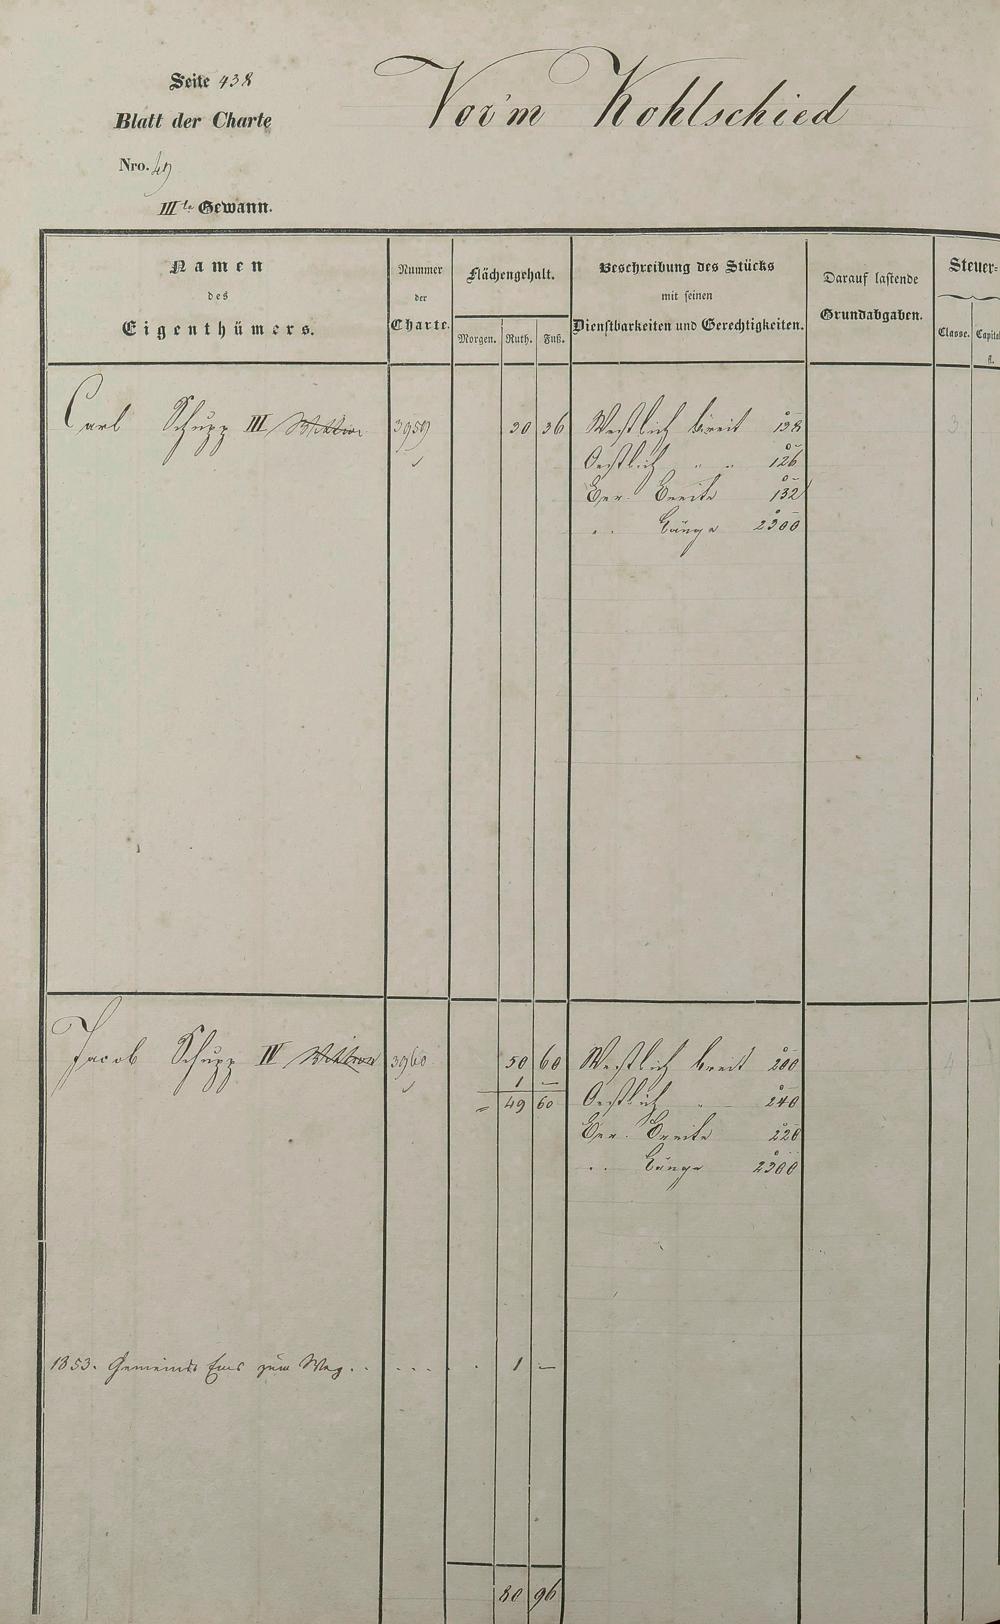 Seite 438
Blatt der Charte
Nro. 49
IIIte Gewann.
Vor'm Kohlschied
Namen
des
Eigenthümers.
Nummer
der
Charte.
Flächengehalt.
Morgen. Ruth. Fuß.
Beschreibung des Stücks
mit seinen
Dienstbarkeiten und Gerechtigkeiten.
Darauf lastende
Grundabgaben.
Steuer-
Classe. Capital
fl.
Carl Schupp III 3959 30 36 Westlich breit 138 3
Oestlich " " 126
Ver. Breite 132
" Länge 2300
Jacob Schupp IV 3960 50 60 Westlich breit 200 4
1 —
= 49 60 Oestlich " 240
Ver. Breite 220
" Länge 2300
1853. Gemeinde Ems zum Weg . . . . . . . 1 —
80 96